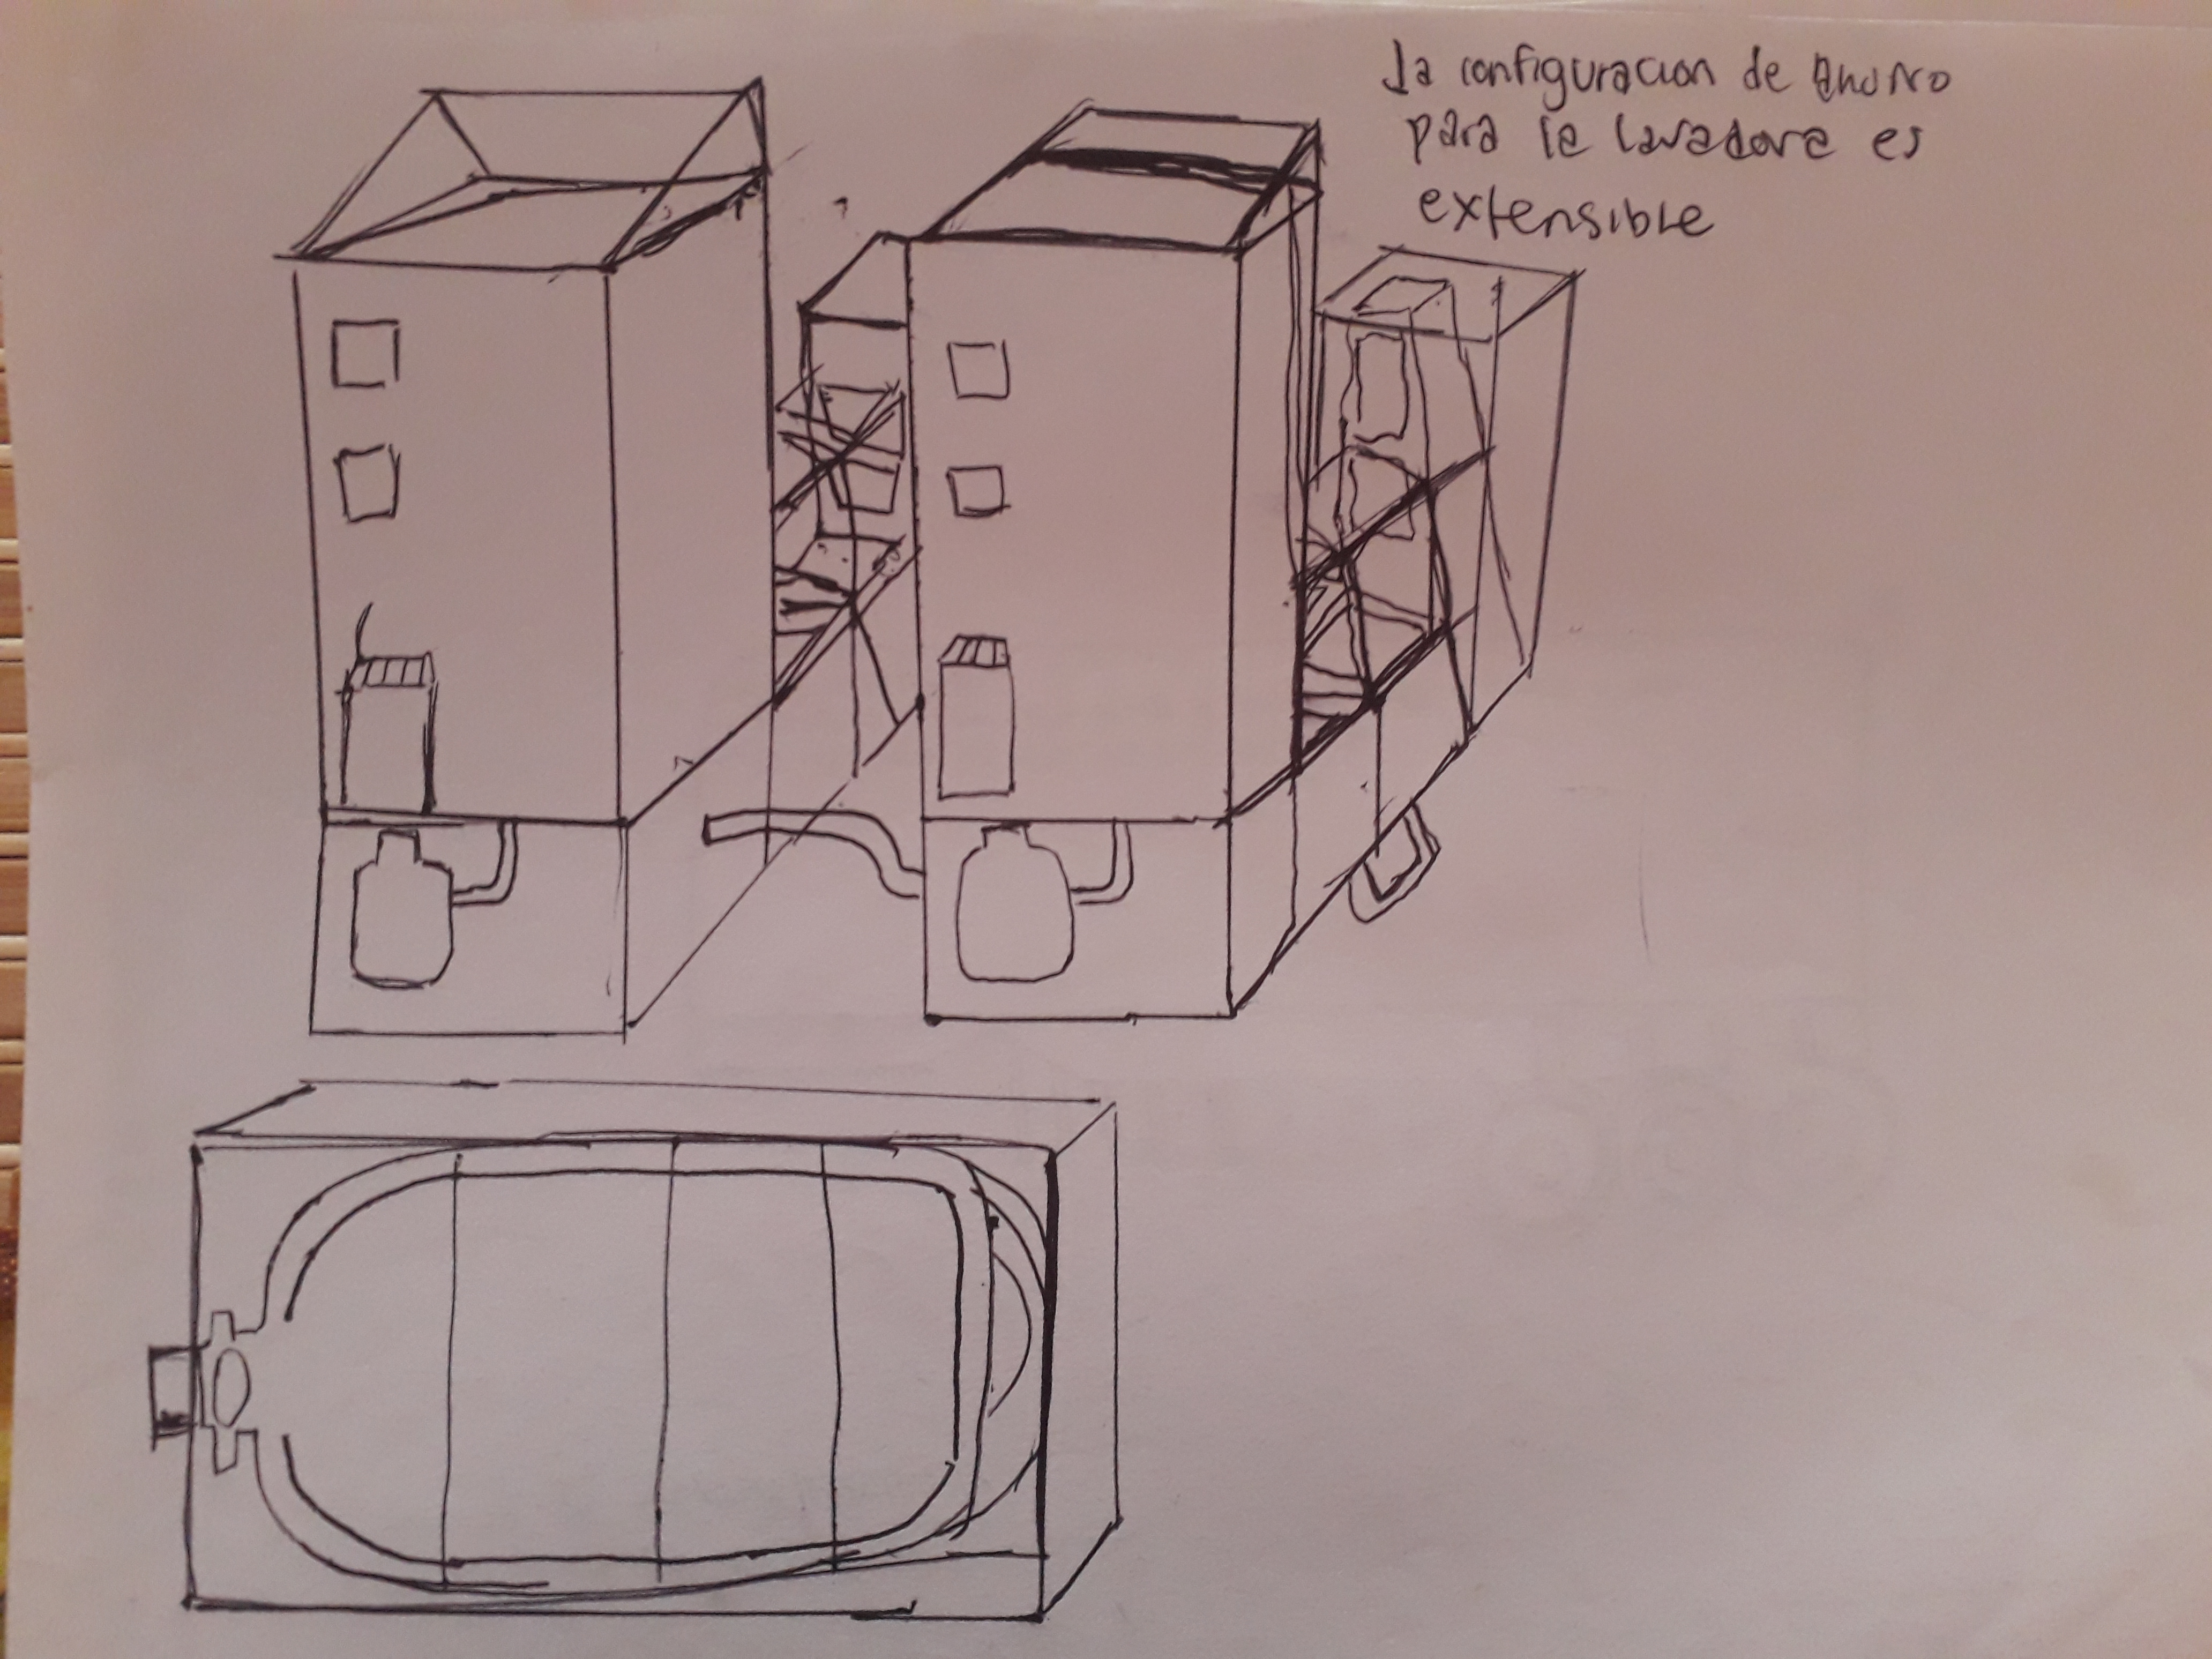 La configuracion de
para la lavadora es
extensible